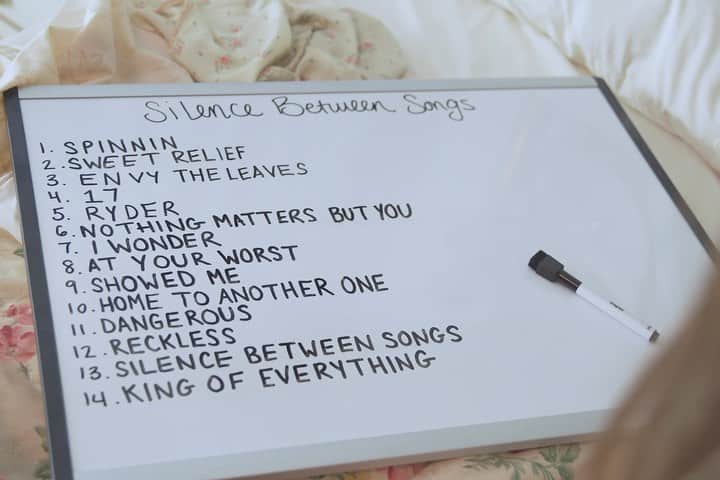 Silence Between Songs
1. SPINNIN
2. SWEET RELIEF
3. ENVY THE LEAVES
4. 17
5. RYDER
6. NOTHING MATTERS BUT YOU
7. I WONDER
8. AT YOUR WORST
9. SHOWED ME
10. HOME TO ANOTHER ONE
11. DANGEROUS
12. RECKLESS
13. SILENCE BETWEEN SONGS
14. KING OF EVERYTHING